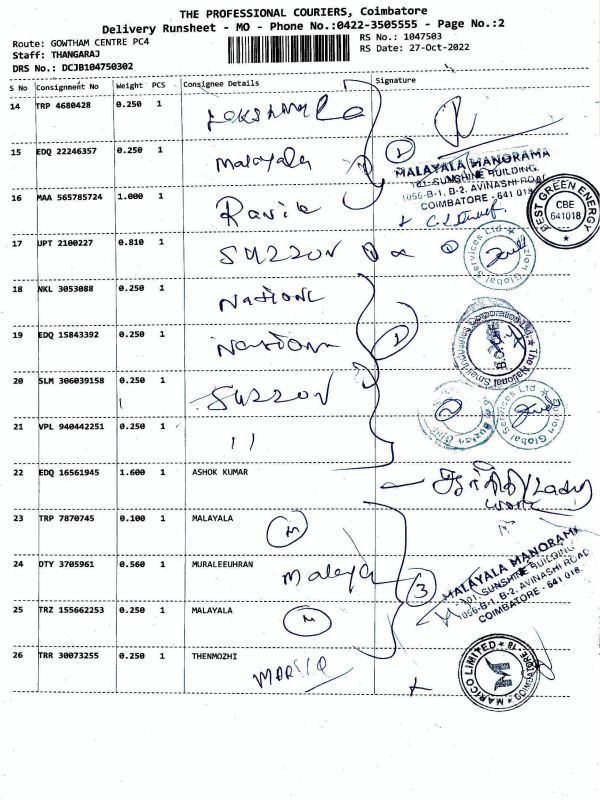 THE PROFESSIONAL COURIERS, Coimbatore
Delivery Runsheet - MO - Phone No.:0422-3505555 - Page No.:2
Route: GOWTHAM CENTRE PC4
RS No.: 1047503
Staff: THANGARAJ
RS Date: 27-Oct-2022
DRS No.: DCJB104750302
S No Consignment No Weight PCS Consignee Details Signature
14 TRP 4680428 0.250 1
15 EDQ 22246357 0.250 1 Malayala
MALAYALA MANORAMA
SUNSHINE BUILDING
1056-B-1, B-2, AVINASHI ROAD
COIMBATORE - 641 018
16 MAA 565785724 1.000 1
BEST GREEN ENERGY
CBE
641018
17 UPT 2100227 0.810 1 SUZZON
Suzlon Global Services Ltd
18 NKL 3053088 0.250 1 National
19 EDQ 15843392 0.250 1 National
The National Small Industries Corporation Ltd
20 SLM 306039158 0.250 1 SUZZON
Suzlon Global Services Ltd
21 VPL 940442251 0.250 1 11
22 EDQ 16561945 1.600 1 ASHOK KUMAR
23 TRP 7870745 0.100 1 MALAYALA
M
24 OTY 3705961 0.560 1 MURALEEUHRAN
Malaya
3
MALAYALA MANORAMA
SUNSHINE BUILDING
1056-B-1, B-2, AVINASHI ROAD
COIMBATORE - 641 018
25 TRZ 155662253 0.250 1 MALAYALA
M
26 TRR 30073255 0.250 1 THENMOZHI
MARICO
MARICO LIMITED
M